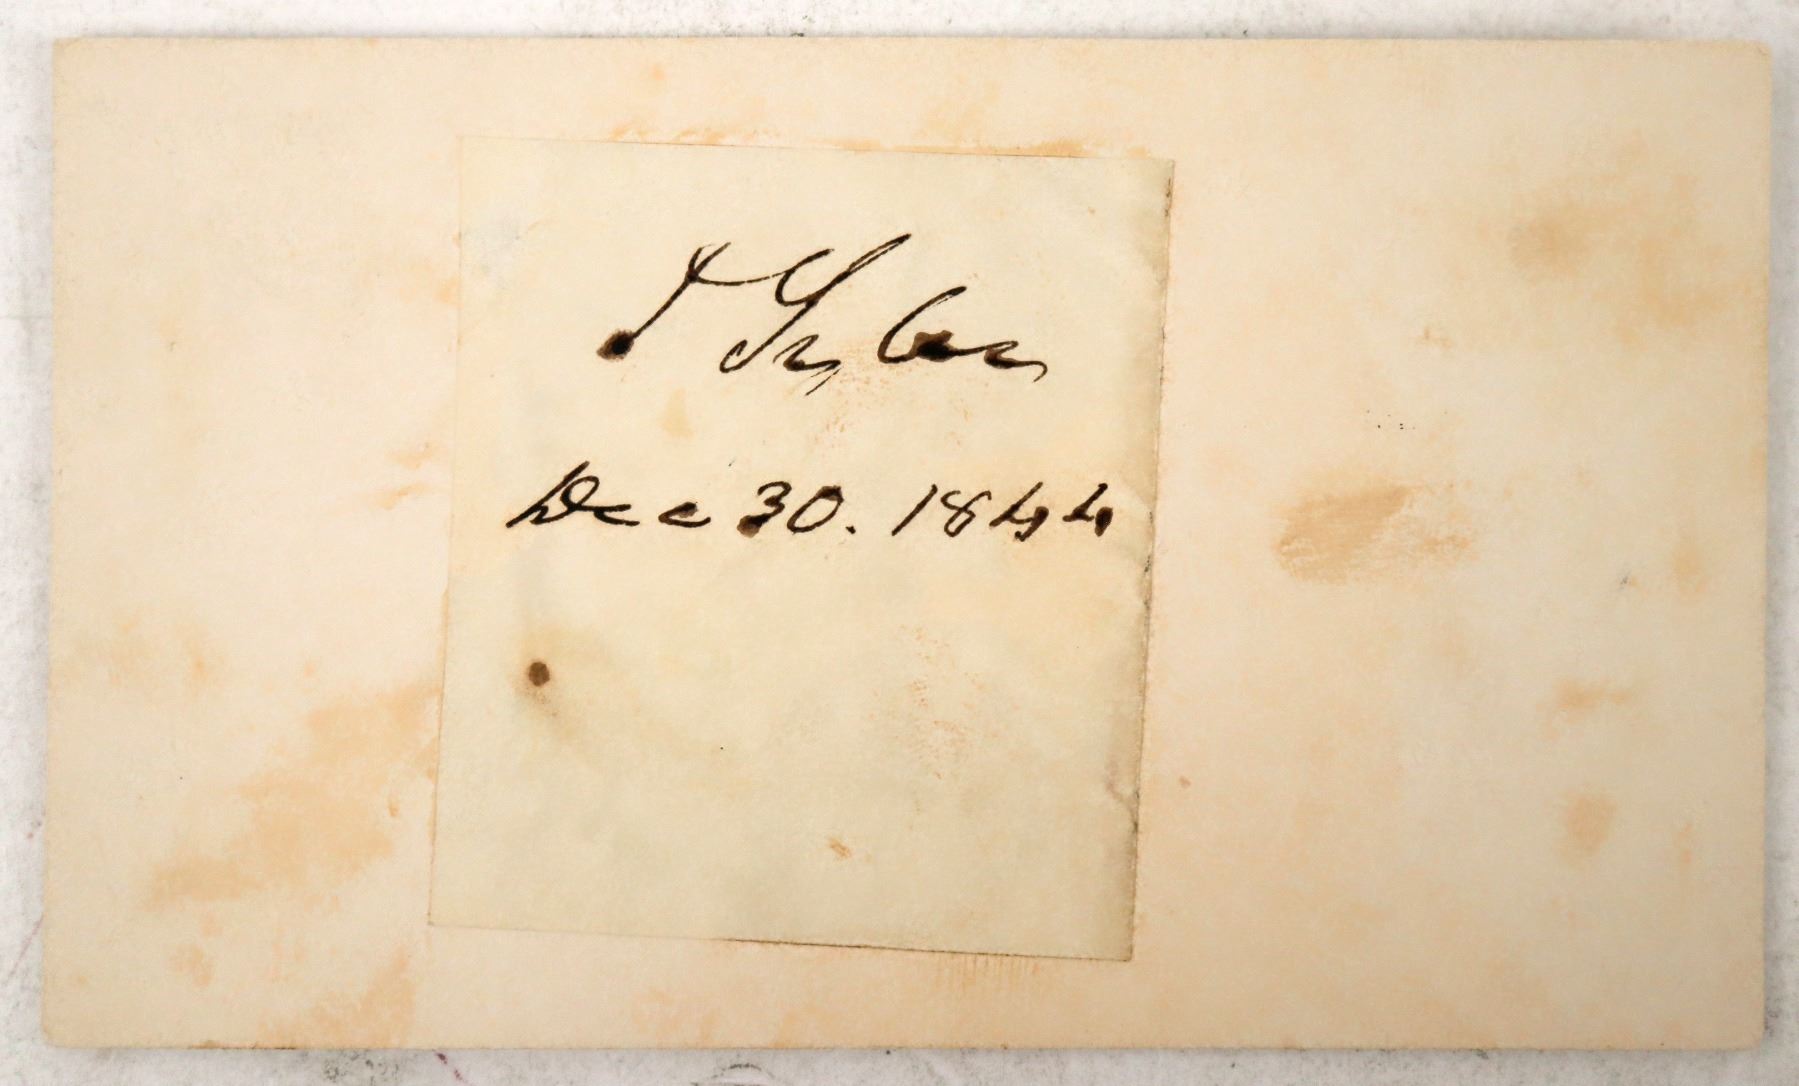 J Tyler
Dec 30. 1844